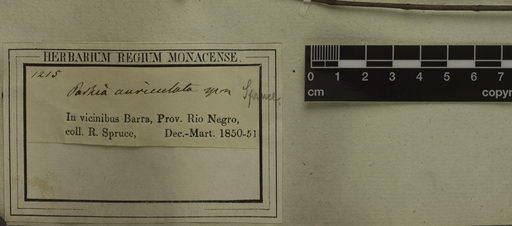 HERBARIUM REGIUM MONACENSE.
1215
Parkia auriculata Spruce.
In vicinibus Barra, Prov. Rio Negro,
coll. R. Spruce, Dec.-Mart. 1850-51
0 1 2 3 4 5 6 7
cm copyr